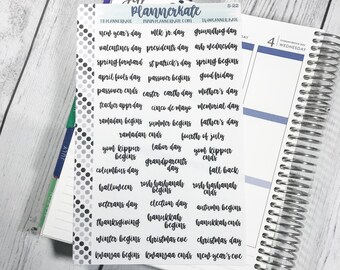 Plannerkate
new year's day mlk jr. day groundhog day
valentines day presidents day ash wednesday
spring forward st patrick's day spring begins
april fools day passover begins good friday
passover ends easter earth day mother's day
teacher appr day cinco de mayo memorial day
ramadan begins summer begins father's day
ramadan ends fourth of july
yom kippur begins labor day yom kippur ends
grandparents day
columbus day fall back
halloween rosh hashanah begins rosh hashanah ends
veterans day election day autumn begins
thanksgiving hanukkah begins hanukkah ends
winter begins christmas eve christmas day
kwanzaa begins kwanzaa ends new year's eve
4
WEDNESDAY
JULY